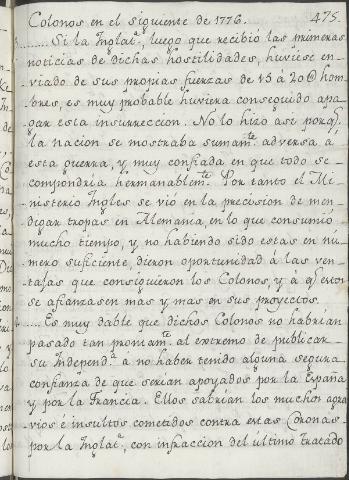 475.
Colonos en el siguiente de 1776.
....... Si la Inglatª., luego que recibió las primeras
noticias de dichas hostilidades, huviese en-
viado de sus propias fuerzas de 15 à 20@ hom-
bres, es muy probable huviera conseguido apa-
gar esta insurreccion. No lo hizo asi porqe.
la nacion se mostraba sumamte. adversa a
esta guerra, y muy confiada en que todo se
compondria hermanablemte. Por tanto el Mi-
nisterio Ingles se vió en la precision de men-
digar tropas en Alemania, en lo que consumió
mucho tiempo, y no habiendo sido estas en nú-
mero suficiente, dieron oportunidad à las ven-
tajas que consiguieron los Colonos, y à qe. estos
se afianzasen mas y mas en sus proyectos.
.... Es muy dable que dichos Colonos no habrian
pasado tan prontamte. al extremo de publicar
su Independª. à no haber tenido alguna segura
confianza de que serian apoyados por la España
y por la Francia. Ellos sabrian los muchos agra
vios è insultos cometidos contra estas Coronas
por la Inglatª., con infraccion del ultimo tratado